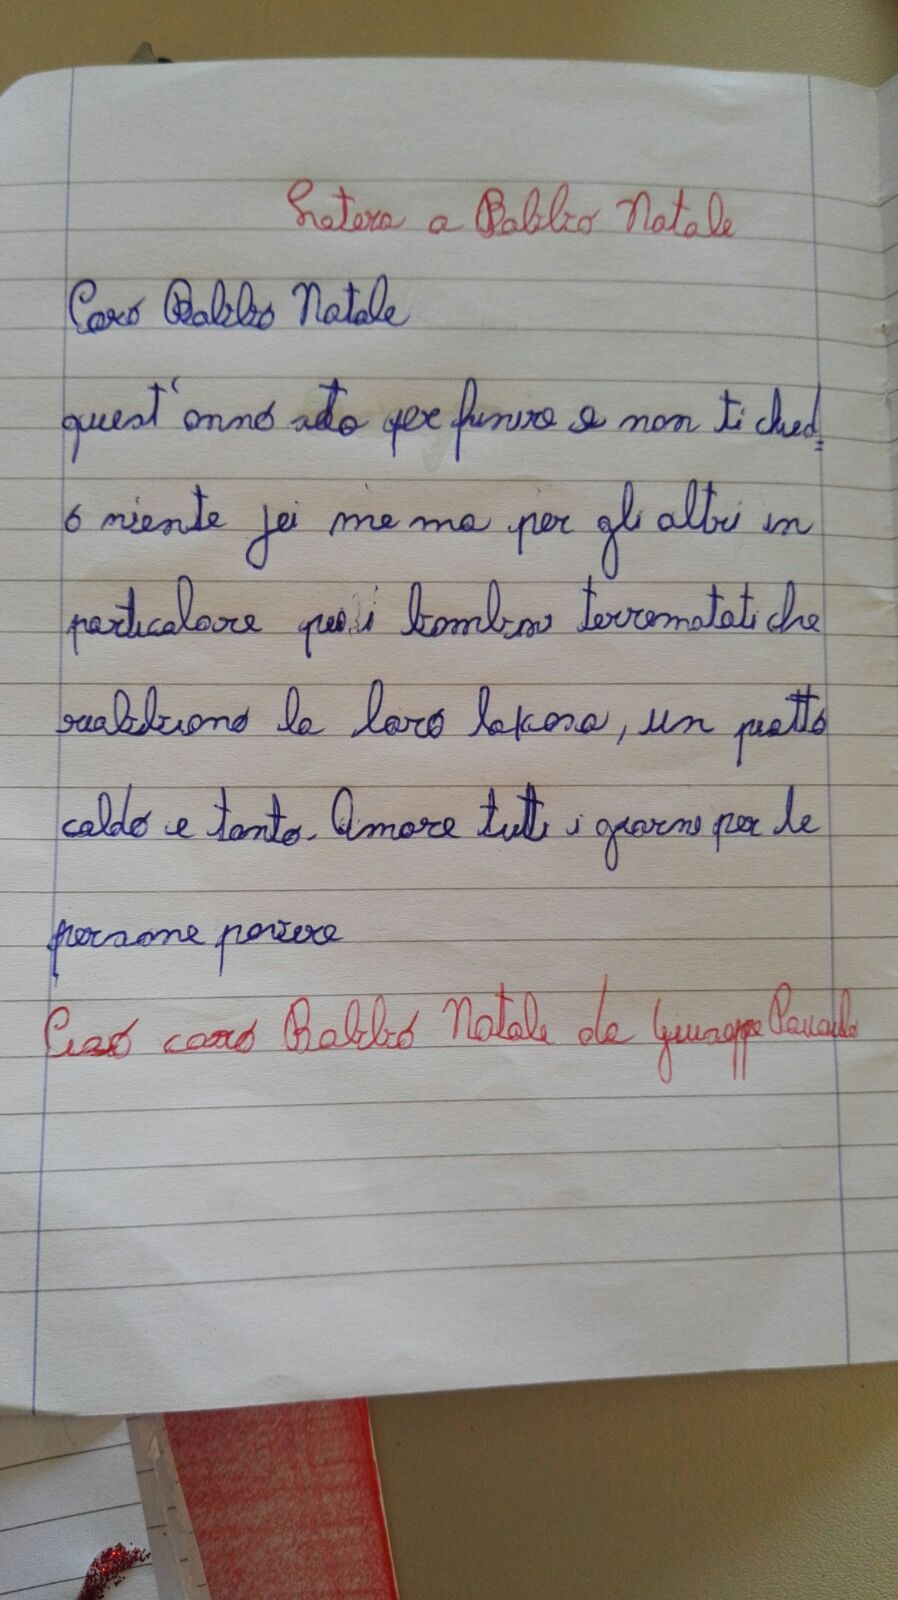 Letera a Babbo Natale
Caro Babbo Natale
quest'anno sta per finire e non ti chied=
o niente per me ma per gli altri in
particalare i bambini terremotati che
riabbiano la loro casa, un piatto
caldo e tanto. Amore tutti i giorni per le
persone povere
Ciao caro Babbo Natale da Giuseppe